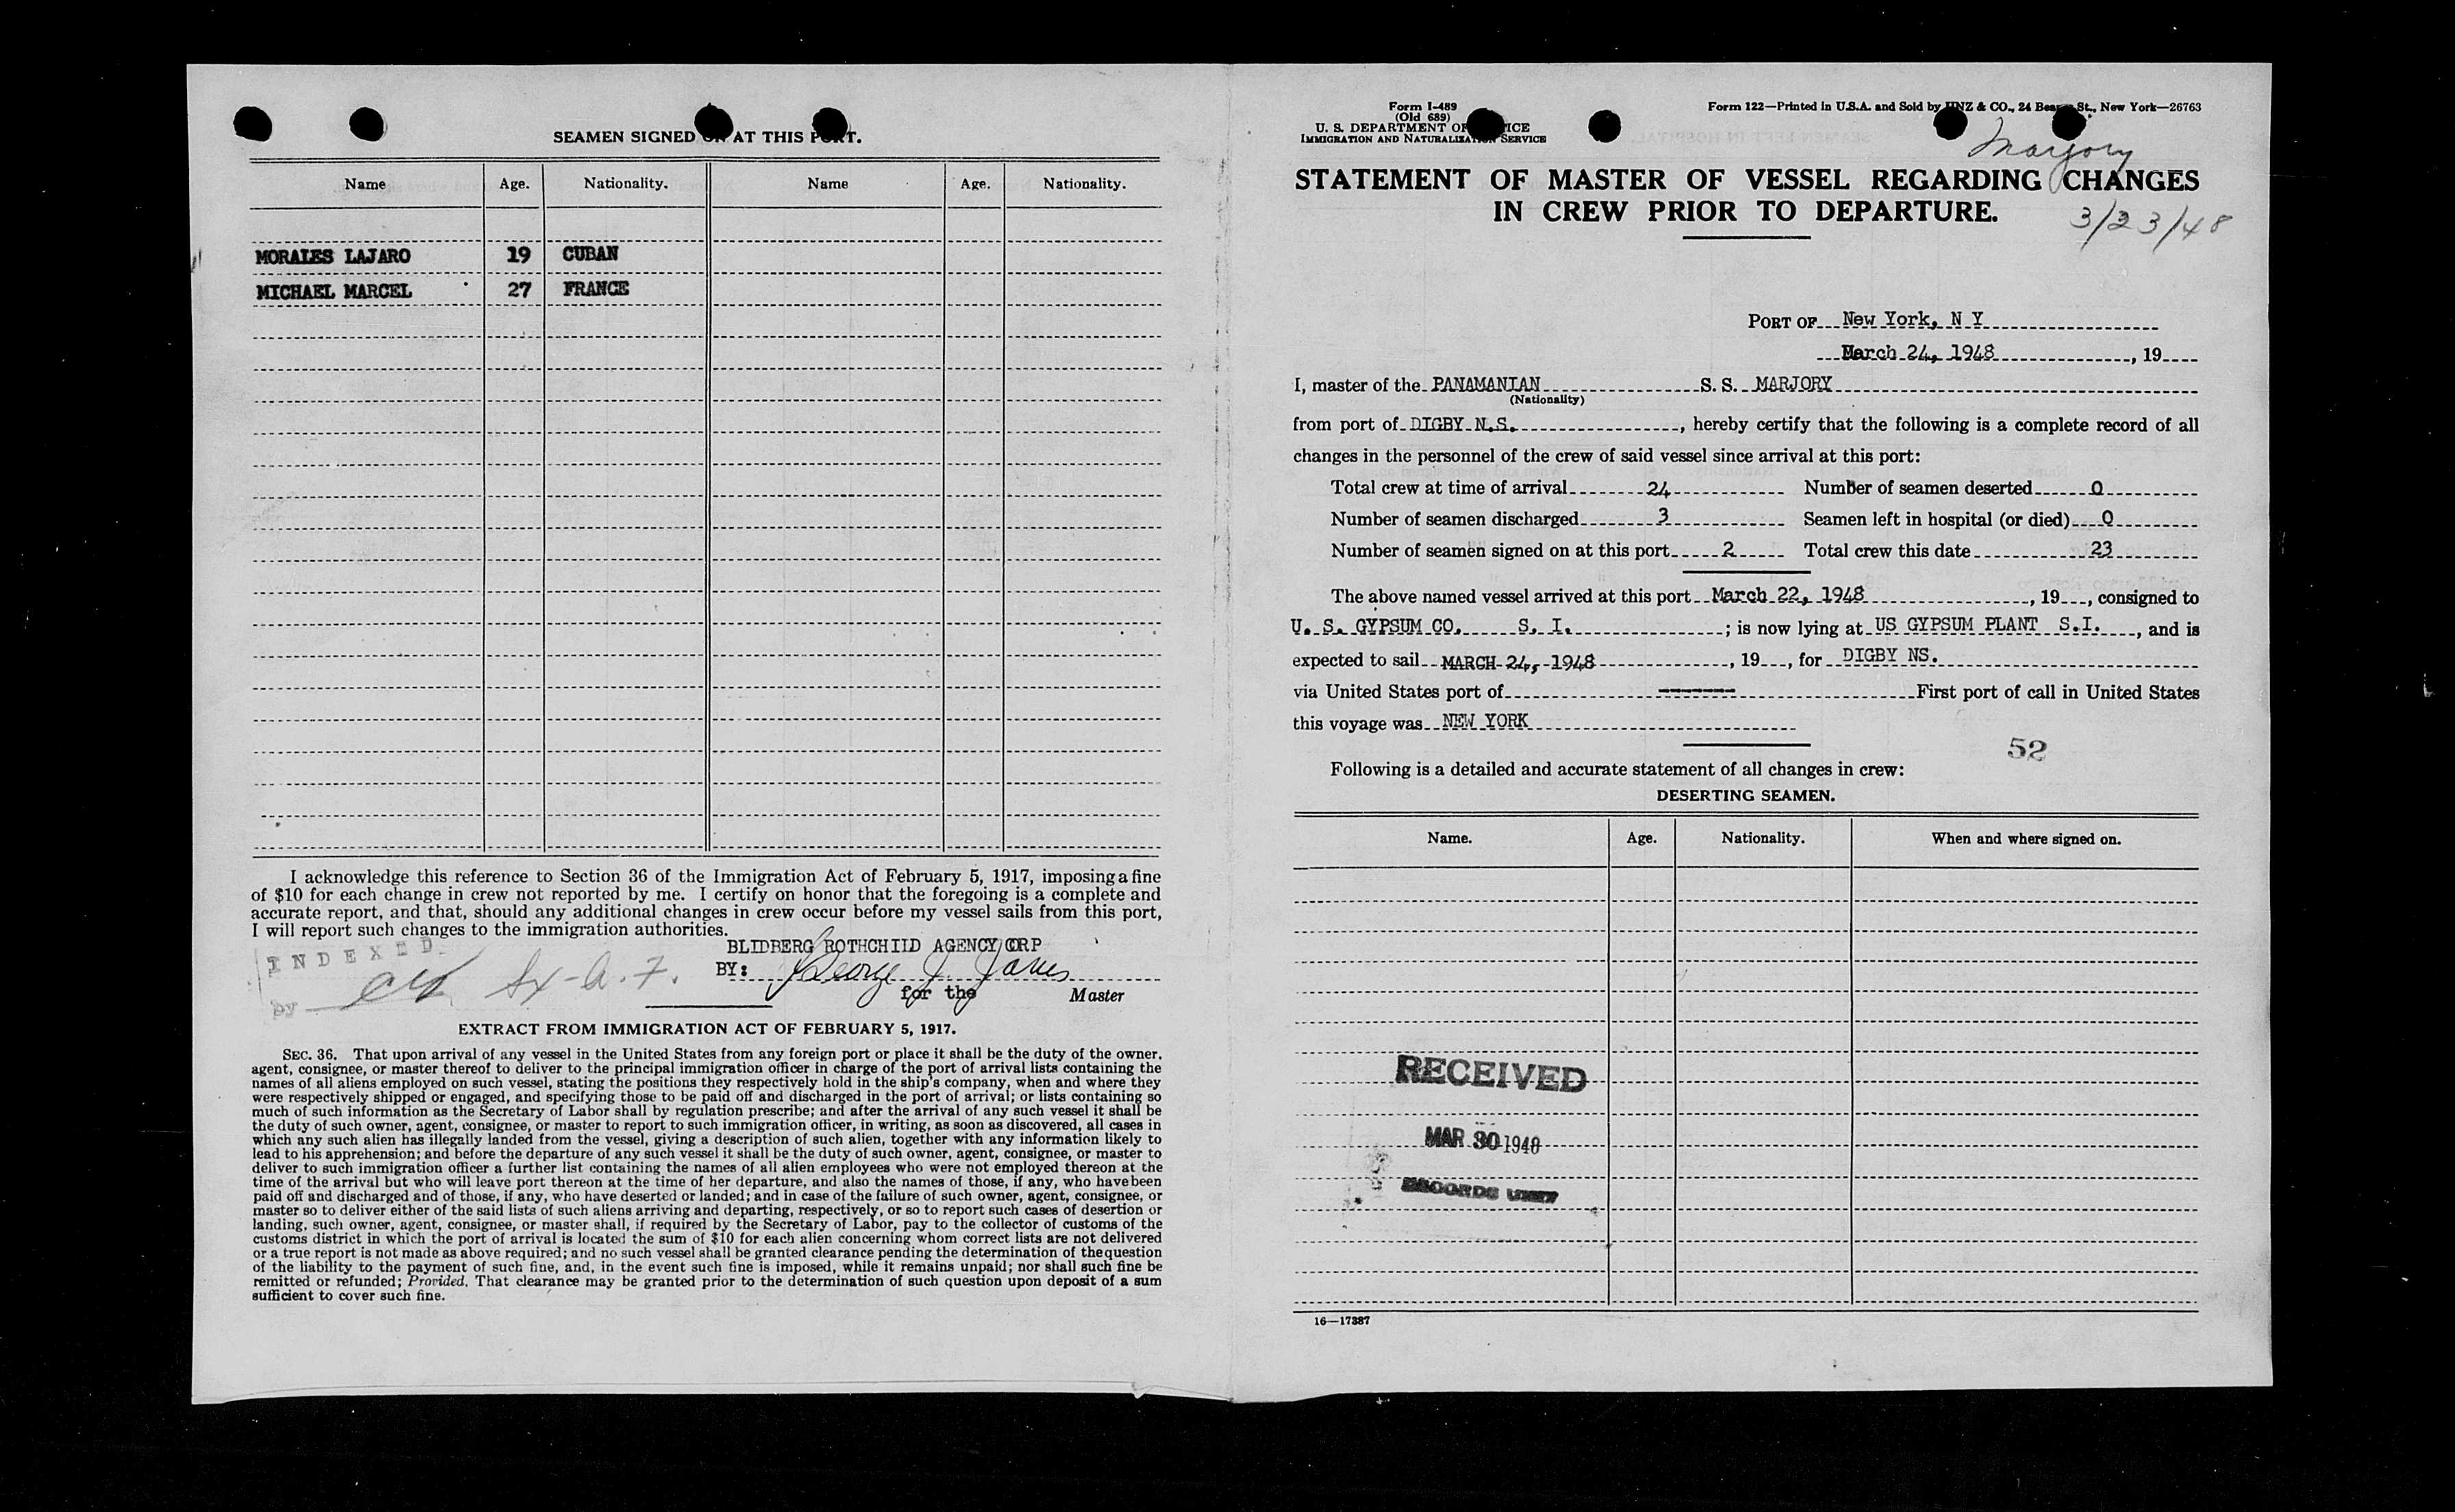 SEAMEN SIGNED ON AT THIS PORT.
Name Age. Nationality. Name Age. Nationality.
MORALES LAJARO 19 CUBAN
MICHAEL MARCEL 27 FRANCE
I acknowledge this reference to Section 36 of the Immigration Act of February 5, 1917, imposing a fine
of $10 for each change in crew not reported by me. I certify on honor that the foregoing is a complete and
accurate report, and that, should any additional changes in crew occur before my vessel sails from this port,
I will report such changes to the immigration authorities.
INDEXED
by
BLIDBERG ROTHCHILD AGENCY CORP
BY: George J.
for the Master
EXTRACT FROM IMMIGRATION ACT OF FEBRUARY 5, 1917.
SEC. 36. That upon arrival of any vessel in the United States from any foreign port or place it shall be the duty of the owner,
agent, consignee, or master thereof to deliver to the principal immigration officer in charge of the port of arrival lists containing the
names of all aliens employed on such vessel, stating the positions they respectively hold in the ship's company, when and where they
were respectively shipped or engaged, and specifying those to be paid off and discharged in the port of arrival; or lists containing so
much of such information as the Secretary of Labor shall by regulation prescribe; and after the arrival of any such vessel it shall be
the duty of such owner, agent, consignee, or master to report to such immigration officer, in writing, as soon as discovered, all cases in
which any such alien has illegally landed from the vessel, giving a description of such alien, together with any information likely to
lead to his apprehension; and before the departure of any such vessel it shall be the duty of such owner, agent, consignee, or master to
deliver to such immigration officer a further list containing the names of all alien employees who were not employed thereon at the
time of the arrival but who will leave port thereon at the time of her departure, and also the names of those, if any, who have been
paid off and discharged and of those, if any, who have deserted or landed; and in case of the failure of such owner, agent, consignee, or
master so to deliver either of the said lists of such aliens arriving and departing, respectively, or so to report such cases of desertion or
landing, such owner, agent, consignee, or master shall, if required by the Secretary of Labor, pay to the collector of customs of the
customs district in which the port of arrival is located the sum of $10 for each alien concerning whom correct lists are not delivered
or a true report is not made as above required; and no such vessel shall be granted clearance pending the determination of the question
of the liability to the payment of such fine, and, in the event such fine is imposed, while it remains unpaid; nor shall such fine be
remitted or refunded; Provided, That clearance may be granted prior to the determination of such question upon deposit of a sum
sufficient to cover such fine.
Form I-489
(Old 689)
U. S. DEPARTMENT OF JUSTICE
IMMIGRATION AND NATURALIZATION SERVICE
Form 122—Printed in U.S.A. and Sold by UNZ & CO., 24 Beaver St., New York—26763
Marjory
STATEMENT OF MASTER OF VESSEL REGARDING CHANGES
IN CREW PRIOR TO DEPARTURE.
3/23/48
PORT OF New York, N Y
March 24, 1948, 19
I, master of the PANAMANIAN S. S. MARJORY
(Nationality)
from port of DIGBY N.S., hereby certify that the following is a complete record of all
changes in the personnel of the crew of said vessel since arrival at this port:
Total crew at time of arrival 24 Number of seamen deserted 0
Number of seamen discharged 3 Seamen left in hospital (or died) 0
Number of seamen signed on at this port 2 Total crew this date 23
The above named vessel arrived at this port March 22, 1948, 19, consigned to
U. S. GYPSUM CO. S. I. ; is now lying at US GYPSUM PLANT S.I., and is
expected to sail MARCH 24, 1948, 19, for DIGBY NS.
via United States port of ------- First port of call in United States
this voyage was NEW YORK
52
Following is a detailed and accurate statement of all changes in crew:
DESERTING SEAMEN.
Name. Age. Nationality. When and where signed on.
RECEIVED
MAR 30 1948
RECORDS UNIT
16—17387